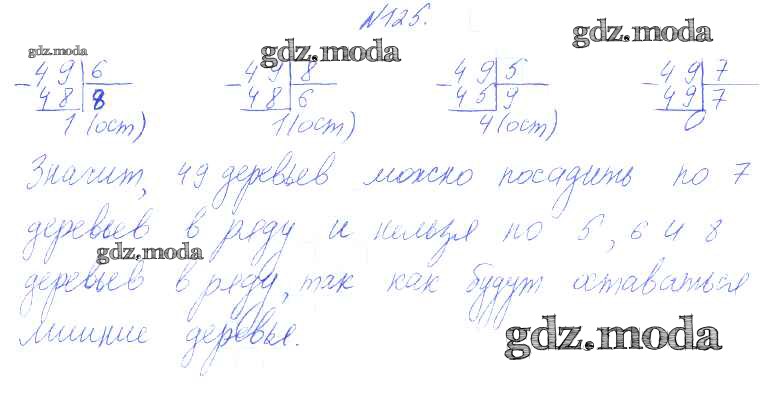 №125.
gdz.moda gdz.moda gdz.moda
-49|6 -49|8 -49|5 -49|7
48|8 48|6 45|9 49|7
1 (ост) 1 (ост) 4 (ост) 0
Значит, 49 деревьев можно посадить по 7
деревьев в ряду и нельзя по 5, 6 и 8
gdz.moda
деревьев в ряду, так как будут оставаться
лишние деревья.
gdz.moda